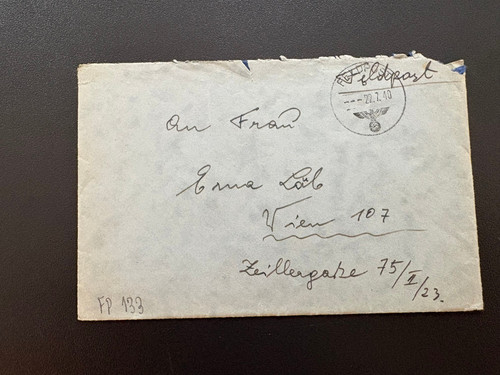 Feldpost
FELDPOST
---22.7.40
---
An Frau
Erna Löb
Wien 107
Zeillergasse 75/II/23.
FP 133